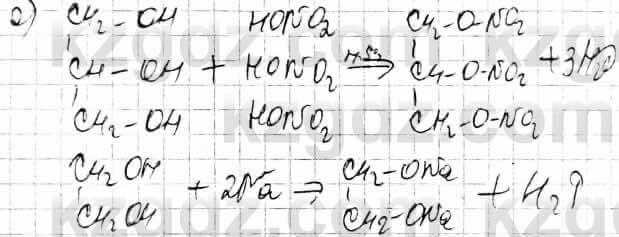 а) CH₂-OH HONO₂ CH₂-O-NO₂
CH-OH + HONO₂ ⇒ CH-O-NO₂ + 3H₂O
CH₂-OH HONO₂ CH₂-O-NO₂
CH₂OH CH₂-ONa
+ 2Na ⇒ + H₂↑
CH₂OH CH₂-ONa
kzgdz.com